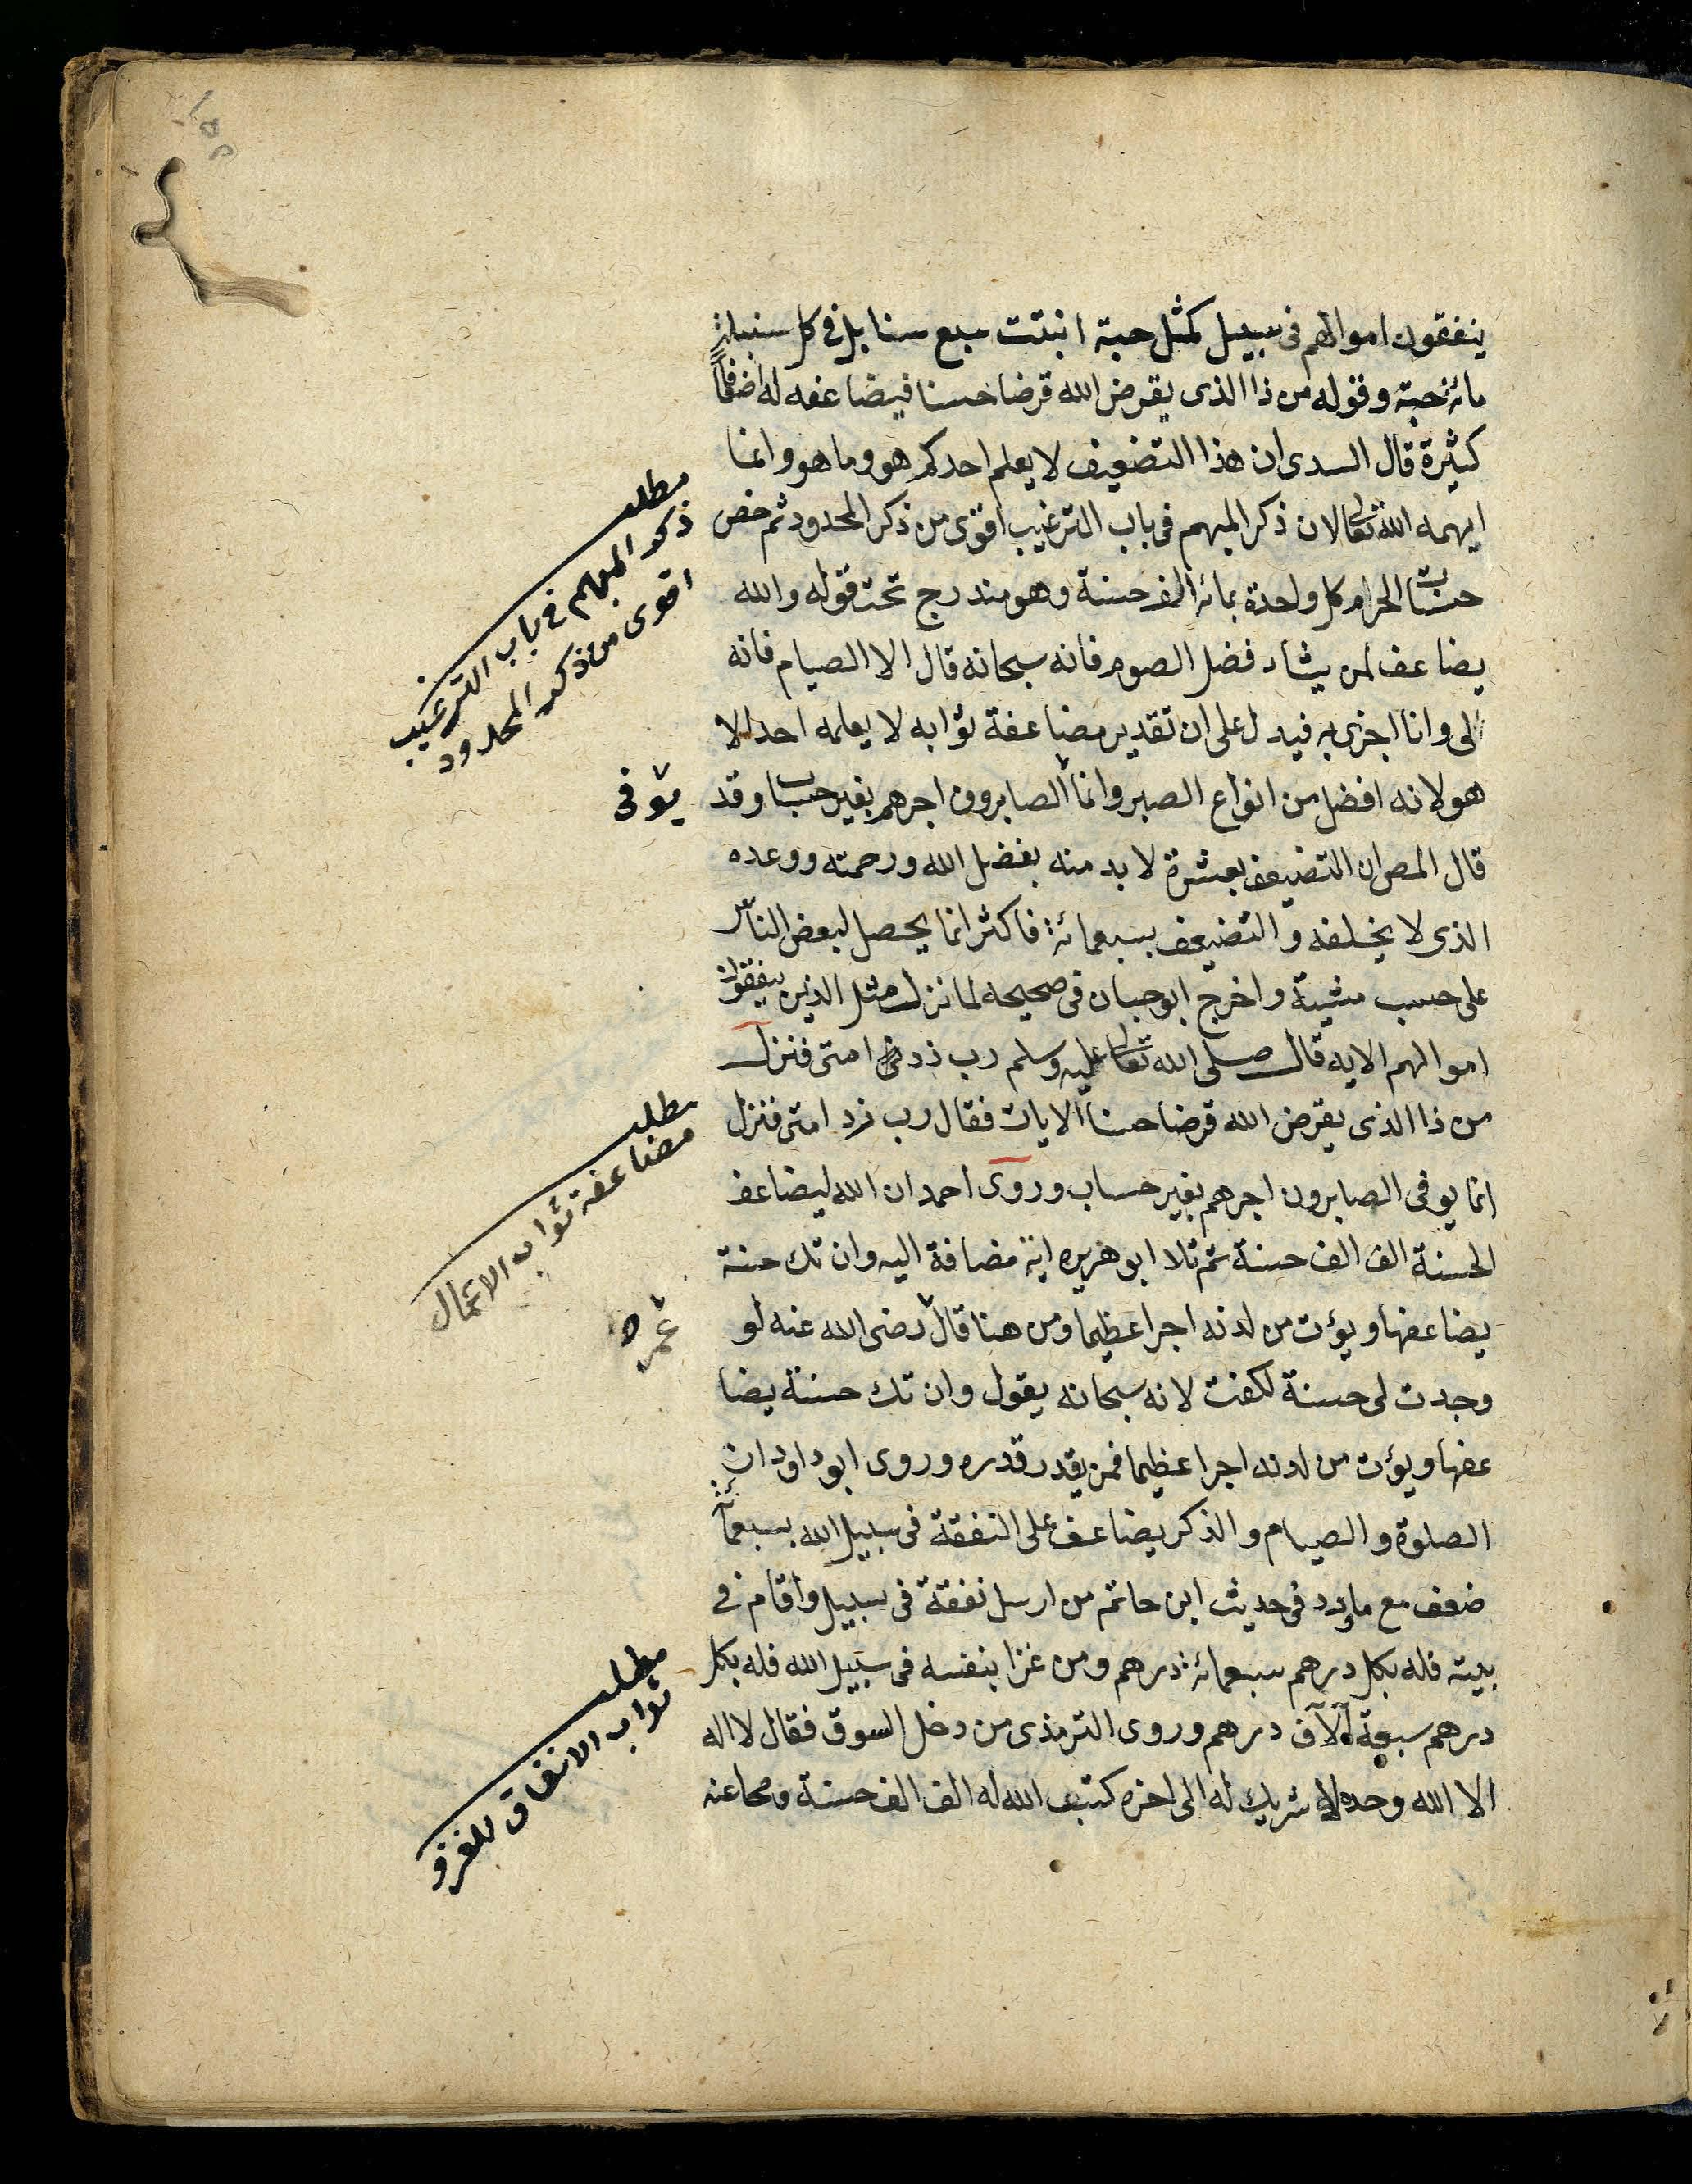 ينفقون اموالهم فى سبيل كمثل حبة انبتت سبع سنابل فى كل سنبلة
مائة حبة وقوله من ذا الذى يقرض الله قرضا حسنا فيضاعفه له اضعافا
كثيرة قال السدى ان هذا التضعيف لا يعلم احدكم هو وما هو وانما
ابهمه الله تعالى لان ذكر المبهم فى باب الترغيب اقوى من ذكر المحدود ثم خص
حسنات الحرام كل واحدة بمائة الف حسنة وهو مندرج تحت قوله والله
يضاعف لمن يشاء فضل الصوم فانه سبحانه قال الا الصيام فانه
لى وانا اجزى به فيدل على ان تقدير مضاعفة ثوابه لا يعلمه احد الا
هو لانه افضل من انواع الصبر وانما الصابرون اجرهم بغير حساب وقد
قال المص ان التضعيف بعشرة لا بد منه بفضل الله ورحمته ووعده
الذى لا يخلفه والتضعيف بسبعمائة فاكثر انما يحصل لبعض الناس
على حسب مشية واخرج ابو حبان فى صحيحه لما نزل مثل الذين ينفقون
اموالهم الاية قال صلى الله تعالى عليه وسلم رب زد امتى فنزل
من ذا الذى يقرض الله قرضا حسنا الايات فقال رب زد امتى فنزل
انما يوفى الصابرون اجرهم بغير حساب وروى احمد ان الله ليضاعف
الحسنة الف الف حسنة ثم تلا ابو هريره اية مضافة اليه وان تك حسنة
يضاعفها ويؤت من لدنه اجرا عظيما ومن هنا قال رضى الله عنه لو
وجدت لى حسنة لكفت لانه سبحانه يقول وان تك حسنة يضا
عفها ويؤت من لدنه اجرا عظيما فمن يقدر قدره وروى ابو داود ان
الصلوة والصيام والذكر يضاعف على النفقة فى سبيل الله بسبعمائة
ضعف مع ما ورد فى حديث ابن حاتم من ارسل نفقة فى سبيل واقام فى
بيته فله بكل درهم سبعمائة درهم ومن غزا بنفسه فى سبيل الله فله بكل
درهم سبعة آلاف درهم وروى الترمذى من دخل السوق فقال لا اله
الا الله وحده لا شريك له الى اخره كتب الله له الف الف حسنة ومحا عنه
مطلب
ذكر المبهم فى باب الترغيب
اقوى من ذكر المحدود
يوفى
مطلب
مضاعفة ثواب الاعمال
عمر
مطلب
ثواب الانفاق للغزو